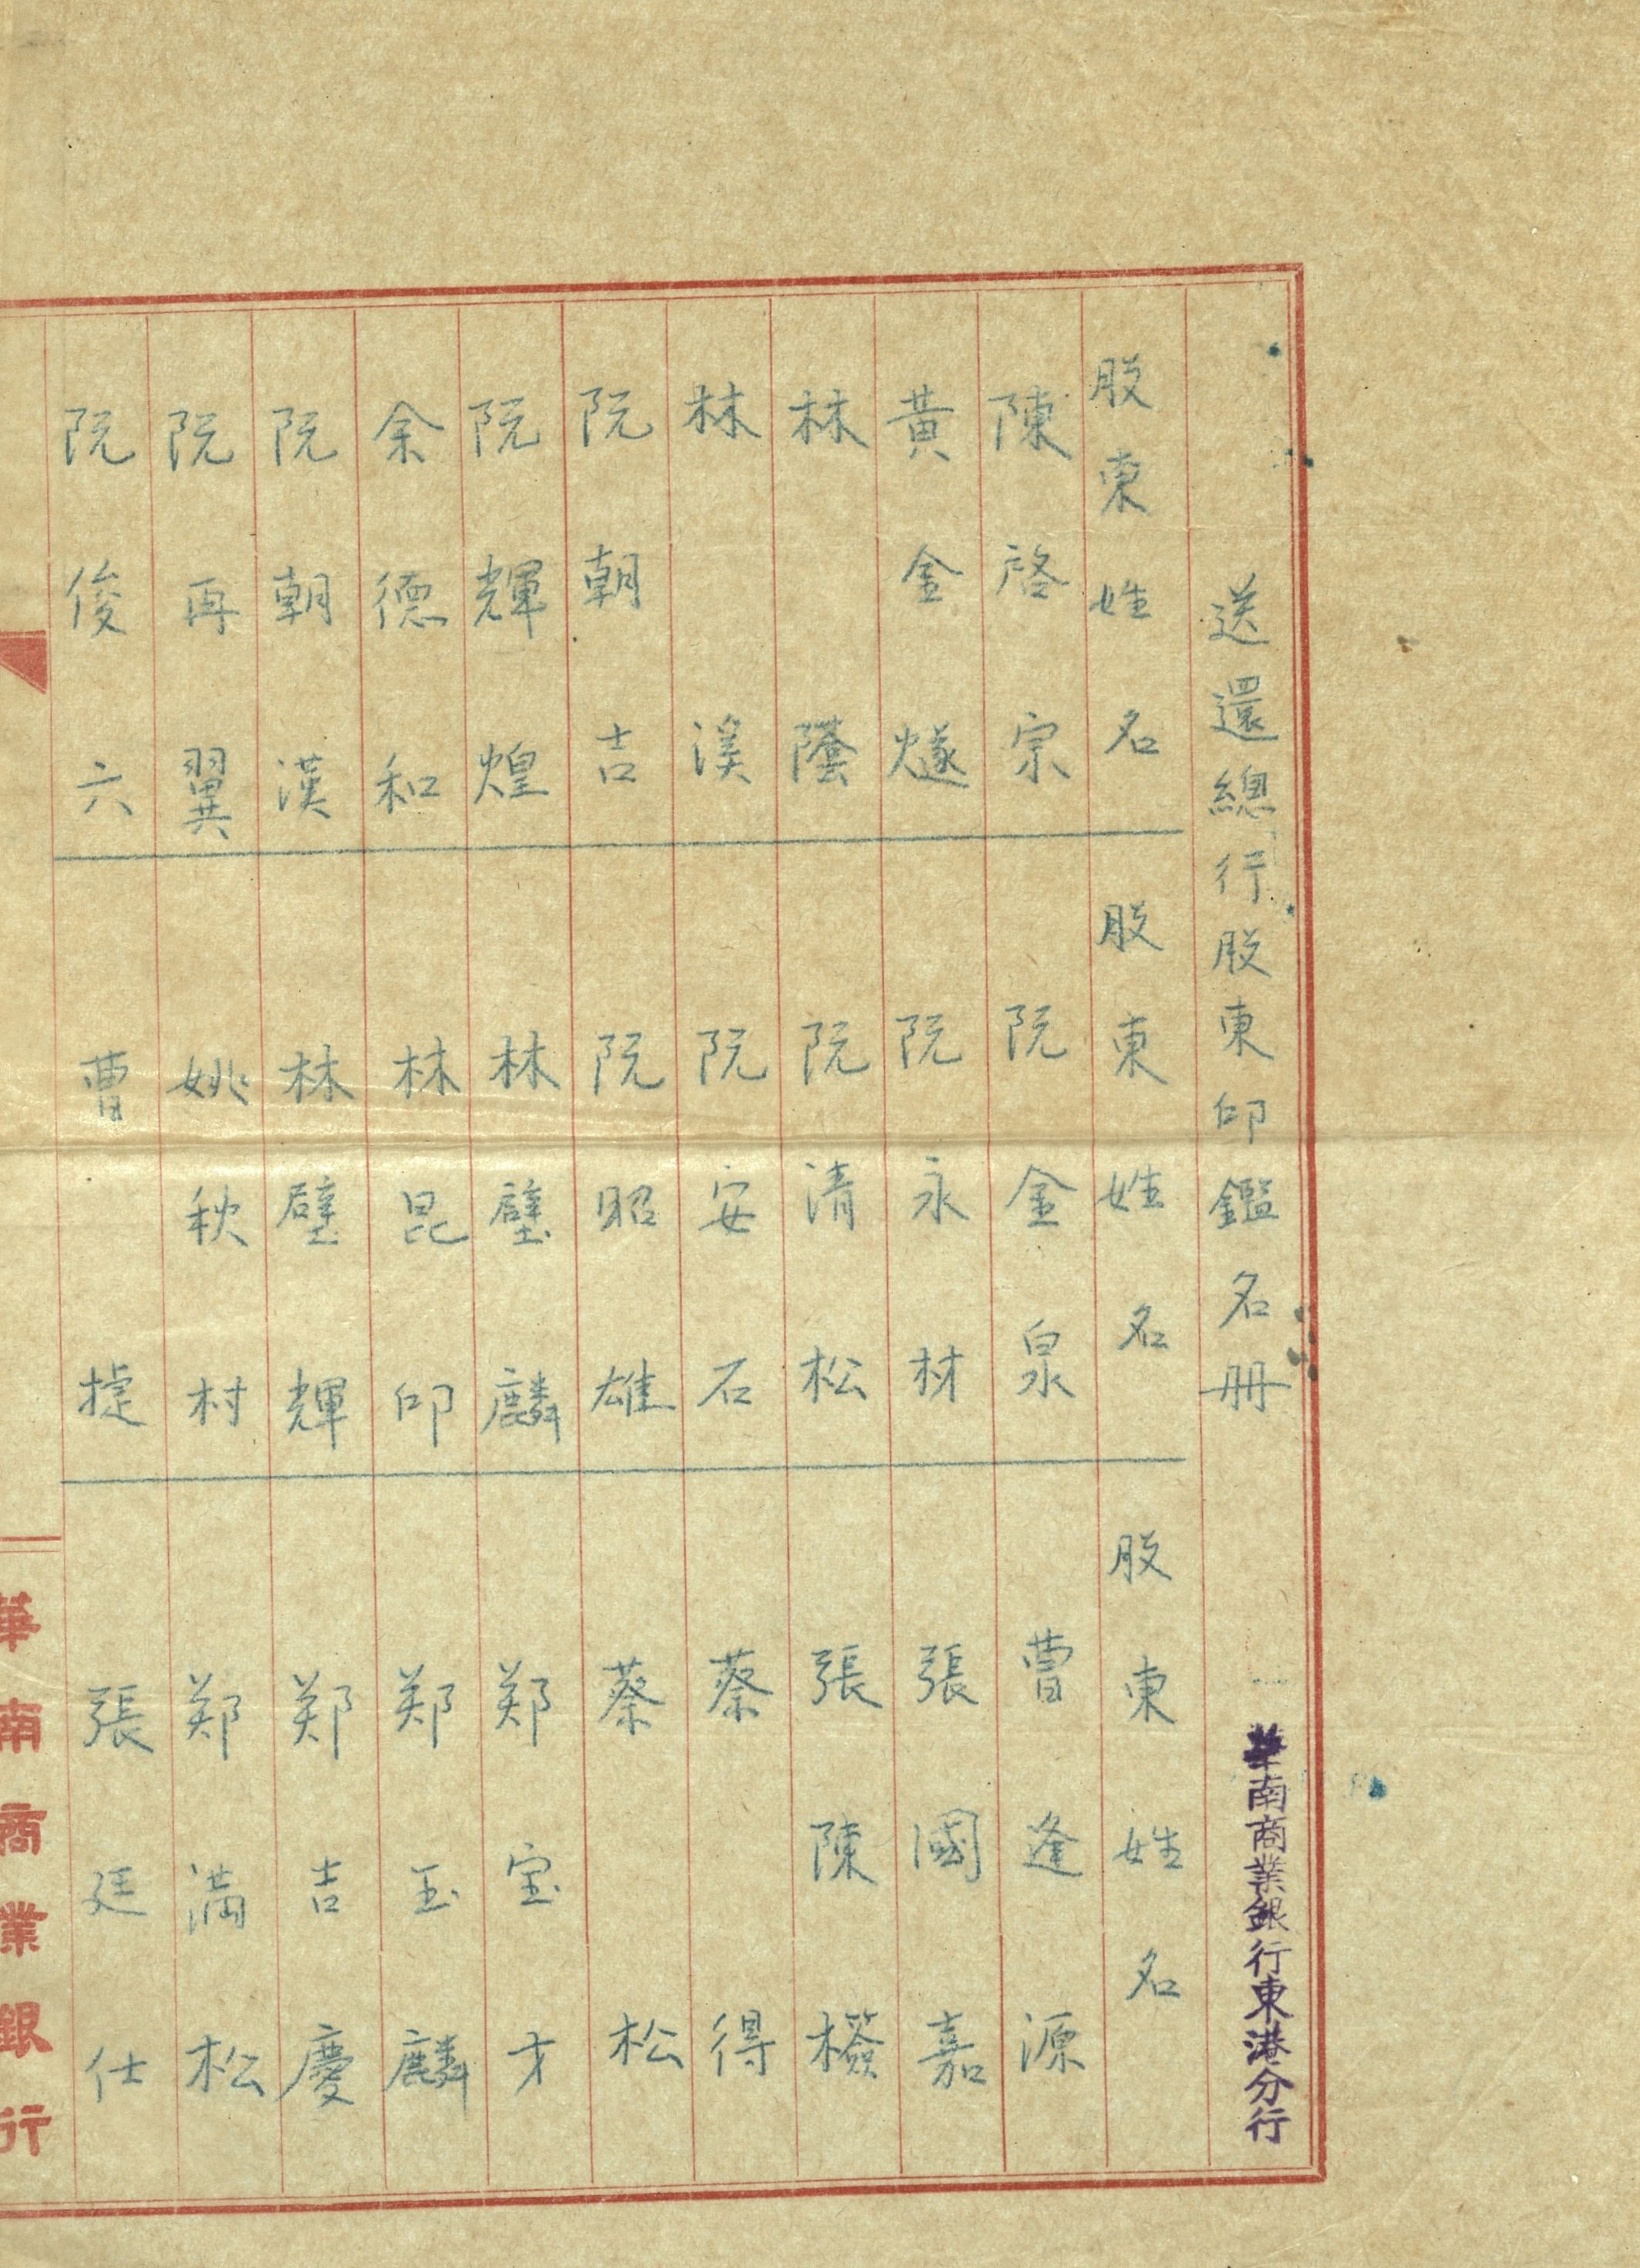 送還總行股東印鑑名冊 華南商業銀行東港分行
股東姓名 股東姓名 股東姓名
陳啓宗 阮金泉 曹逢源
黃金燧 阮永材 張國嘉
林 阮清松 張陳
林溪 阮安石 蔡得
阮朝吉 阮昭雄 蔡松
阮輝煌 林璧麟 郑宝才
余德和 林昆印 郑玉麟
阮朝漢 林璧輝 郑吉慶
阮再翼 姚秋村 郑満松
阮俊六 曹捷 張廷仕
華南商業銀行